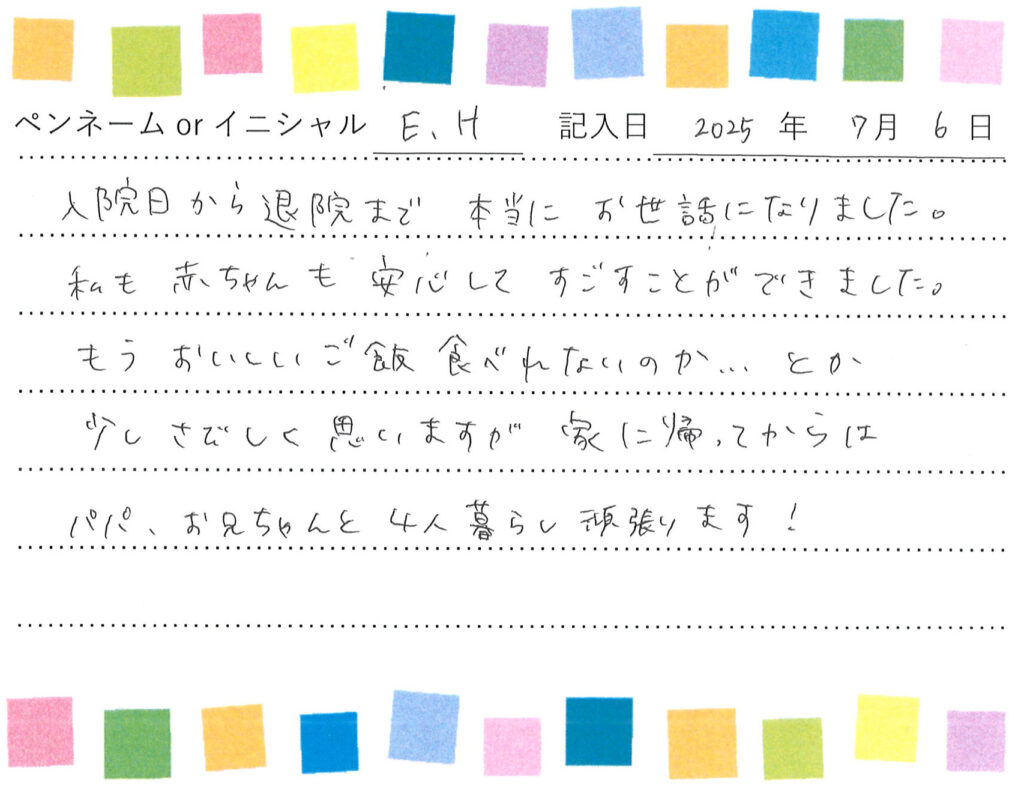 ペンネーム or イニシャル E、H 記入日 2025 年 7月 6 日
入院日から退院まで 本当に お世話になりました。
私も 赤ちゃんも 安心して すごすことができました。
もう おいしいご飯 食べれないのか… とか
少し さびしく 思いますが 家に帰ってからは
パパ、お兄ちゃんと 4人暮らし 頑張ります!